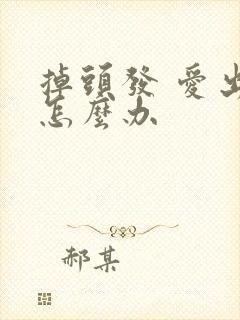 掉頭發 愛出
怎麼办
郝某